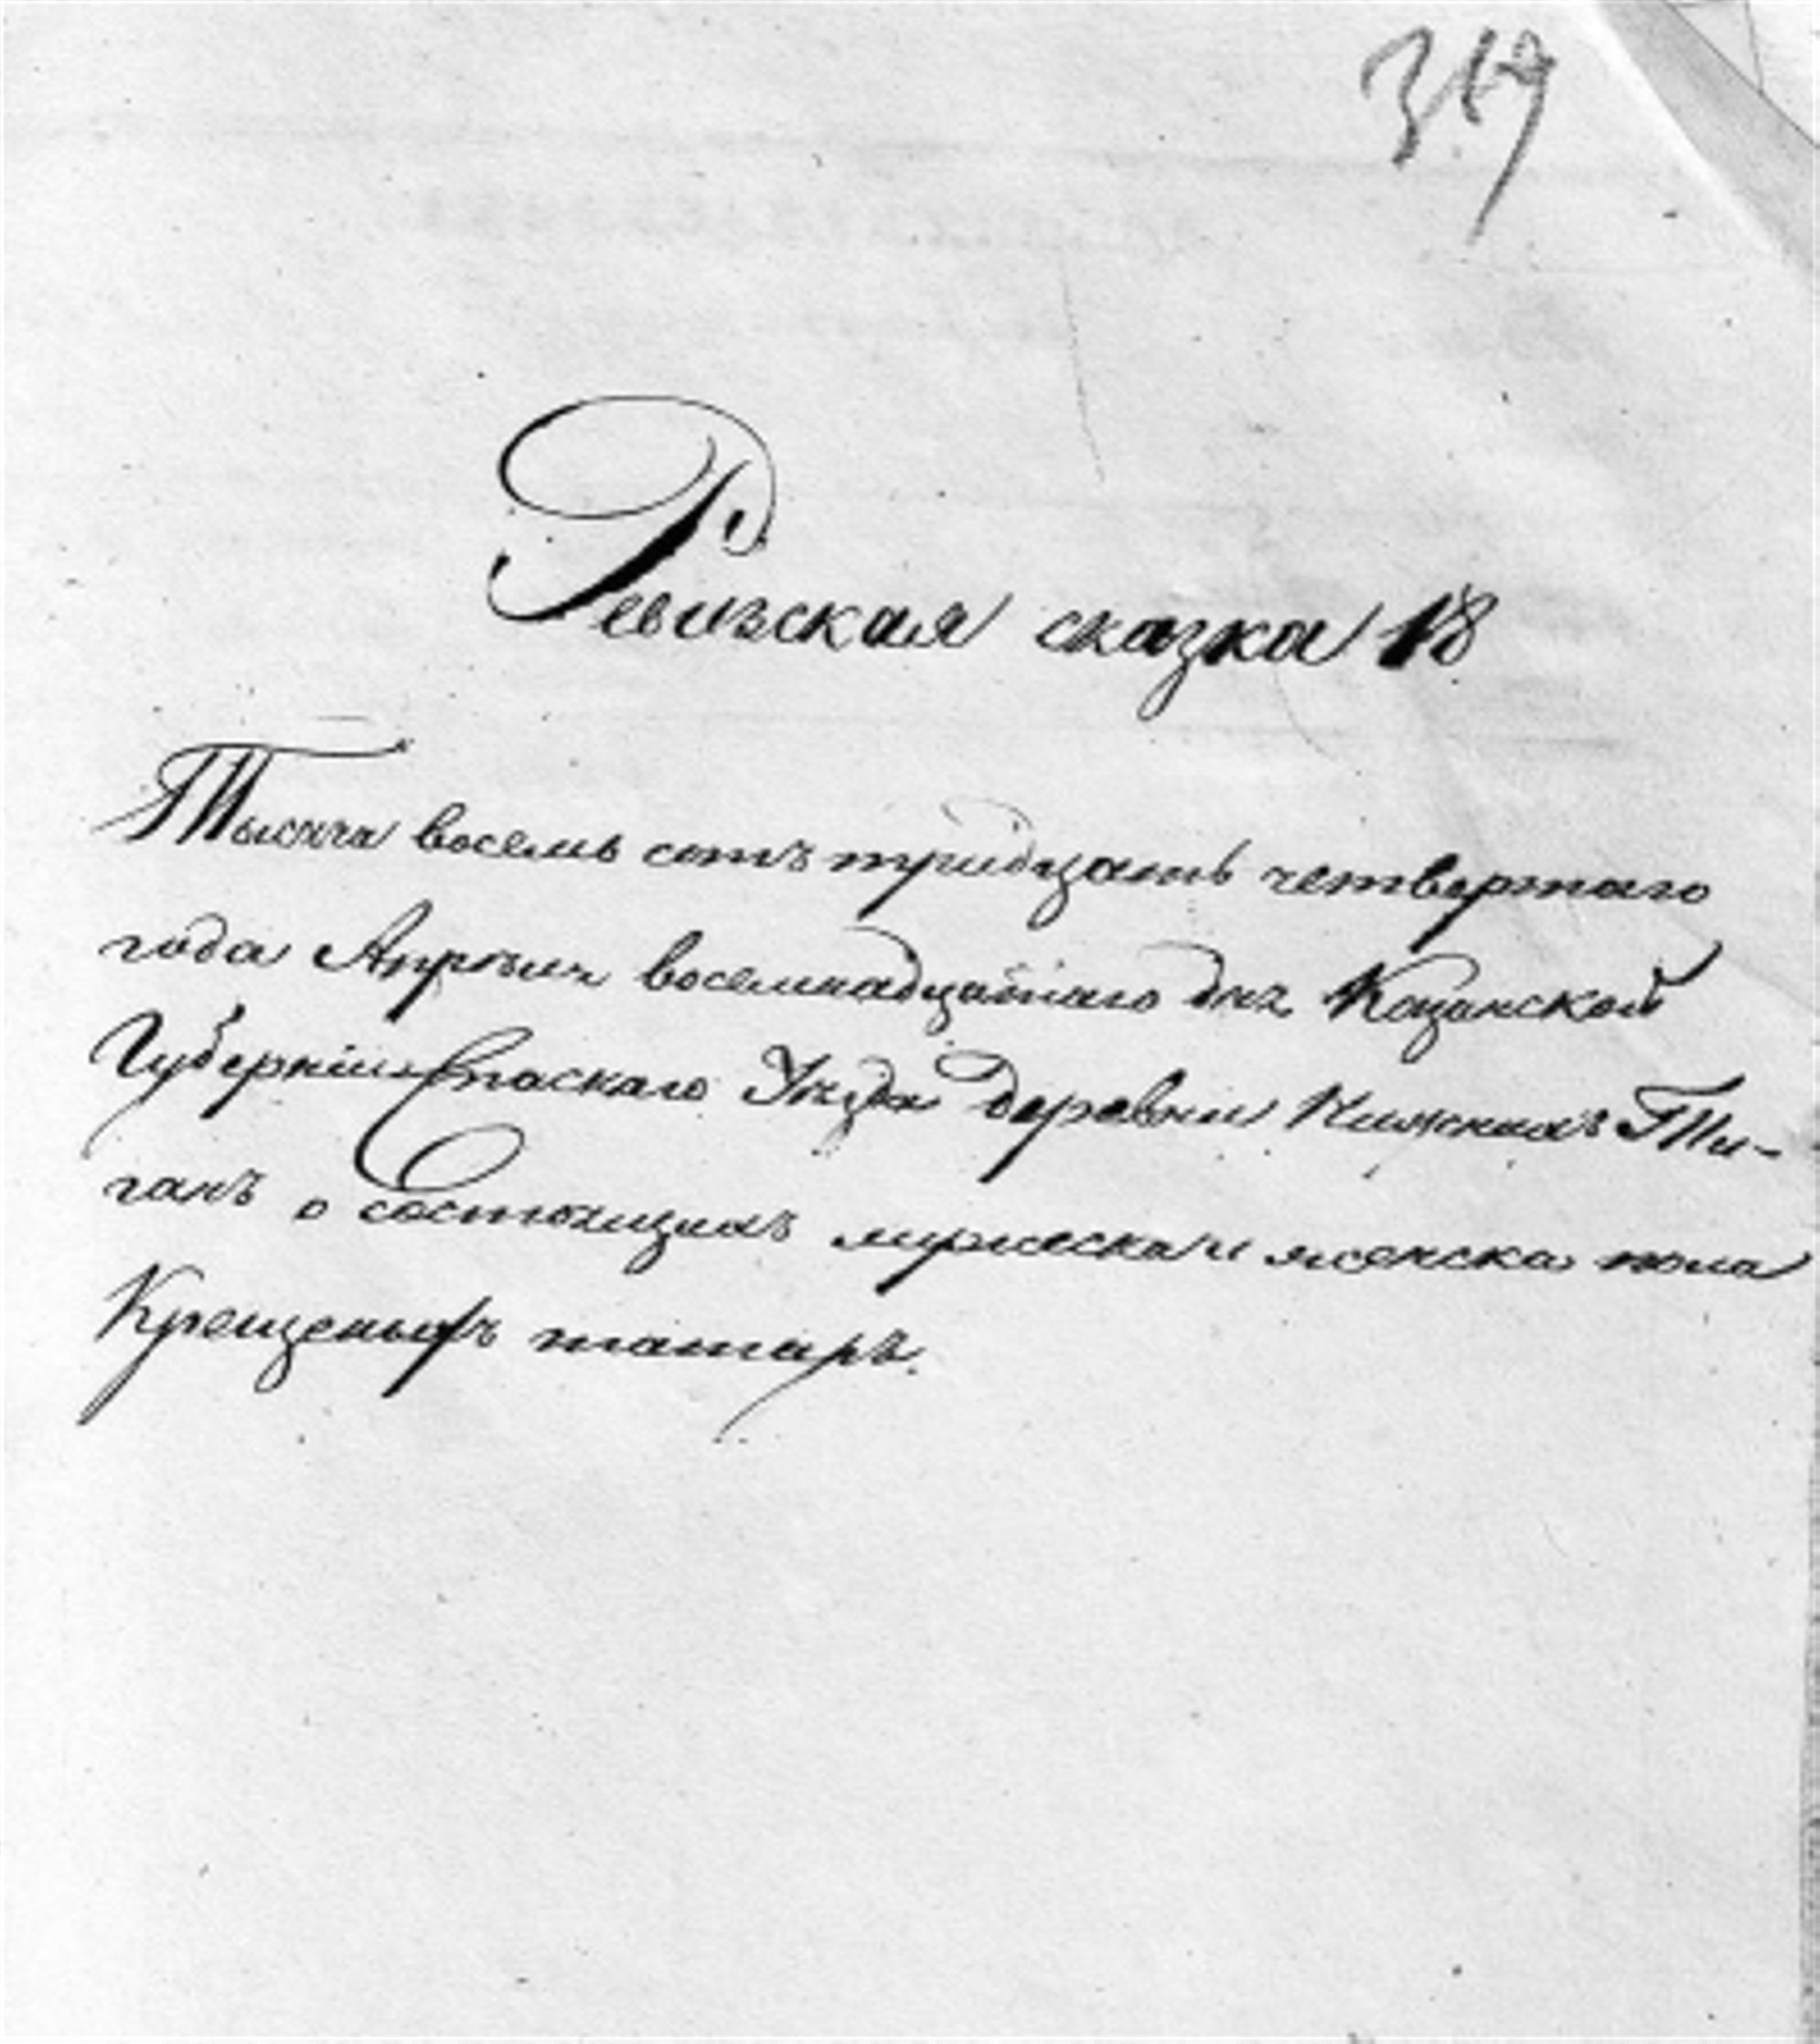 319
Ревизская сказка 18
Тысяча восемь сотъ тридцать четвертаго
года Апрѣля восемнадцатаго дня Казанской
Губерніи Спаскаго Уѣзда деревни Нижнихъ Ти-
ганъ о состоящихъ мужеска и женска пола
Крещеныхъ татаръ.